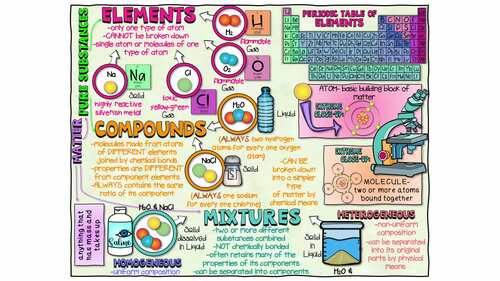 ELEMENTS
-only one type of atom
-CANNOT be broken down
-single atom or molecules of one
type of atom
H₂
H
flammable
Gas
O₂
O
flammable
Gas
Na
Na
Solid
highly reactive
silverish metal
Cl
Cl
toxic
yellow-green
Gas
PERIODIC TABLE OF
ELEMENTS
ATOM- basic building block of
matter
EXTREME
CLOSE-UP!
EXTREME
CLOSE-UP!
MOLECULE-
two or more atoms
bound together
MATTER
PURE SUBSTANCES
anything that
has mass and
takes up
COMPOUNDS
-molecules made from atoms
of DIFFERENT elements
joined by chemical bonds
-properties are DIFFERENT
from component elements
-ALWAYS contains the same
ratio of its component
H₂O
Liquid
(ALWAYS two hydrogen
atoms for every one oxygen
atom)
NaCl
Solid
(ALWAYS one sodium
for every one chlorine)
-CAN BE
broken down
into a simpler
type
of matter by
chemical means
MIXTURES
-two or more different
substances combined
-NOT chemically bound
-often retains many of the
properties of its components
-can be separated into components
H₂O & NaCl
Saline
Solid
dissolved
in Liquid
HOMOGENEOUS
-uniform composition
HETEROGENEOUS
-non-uniform
composition
-can be separated
into its original
parts by physical
means
Solid
in
Liquid
H₂O &